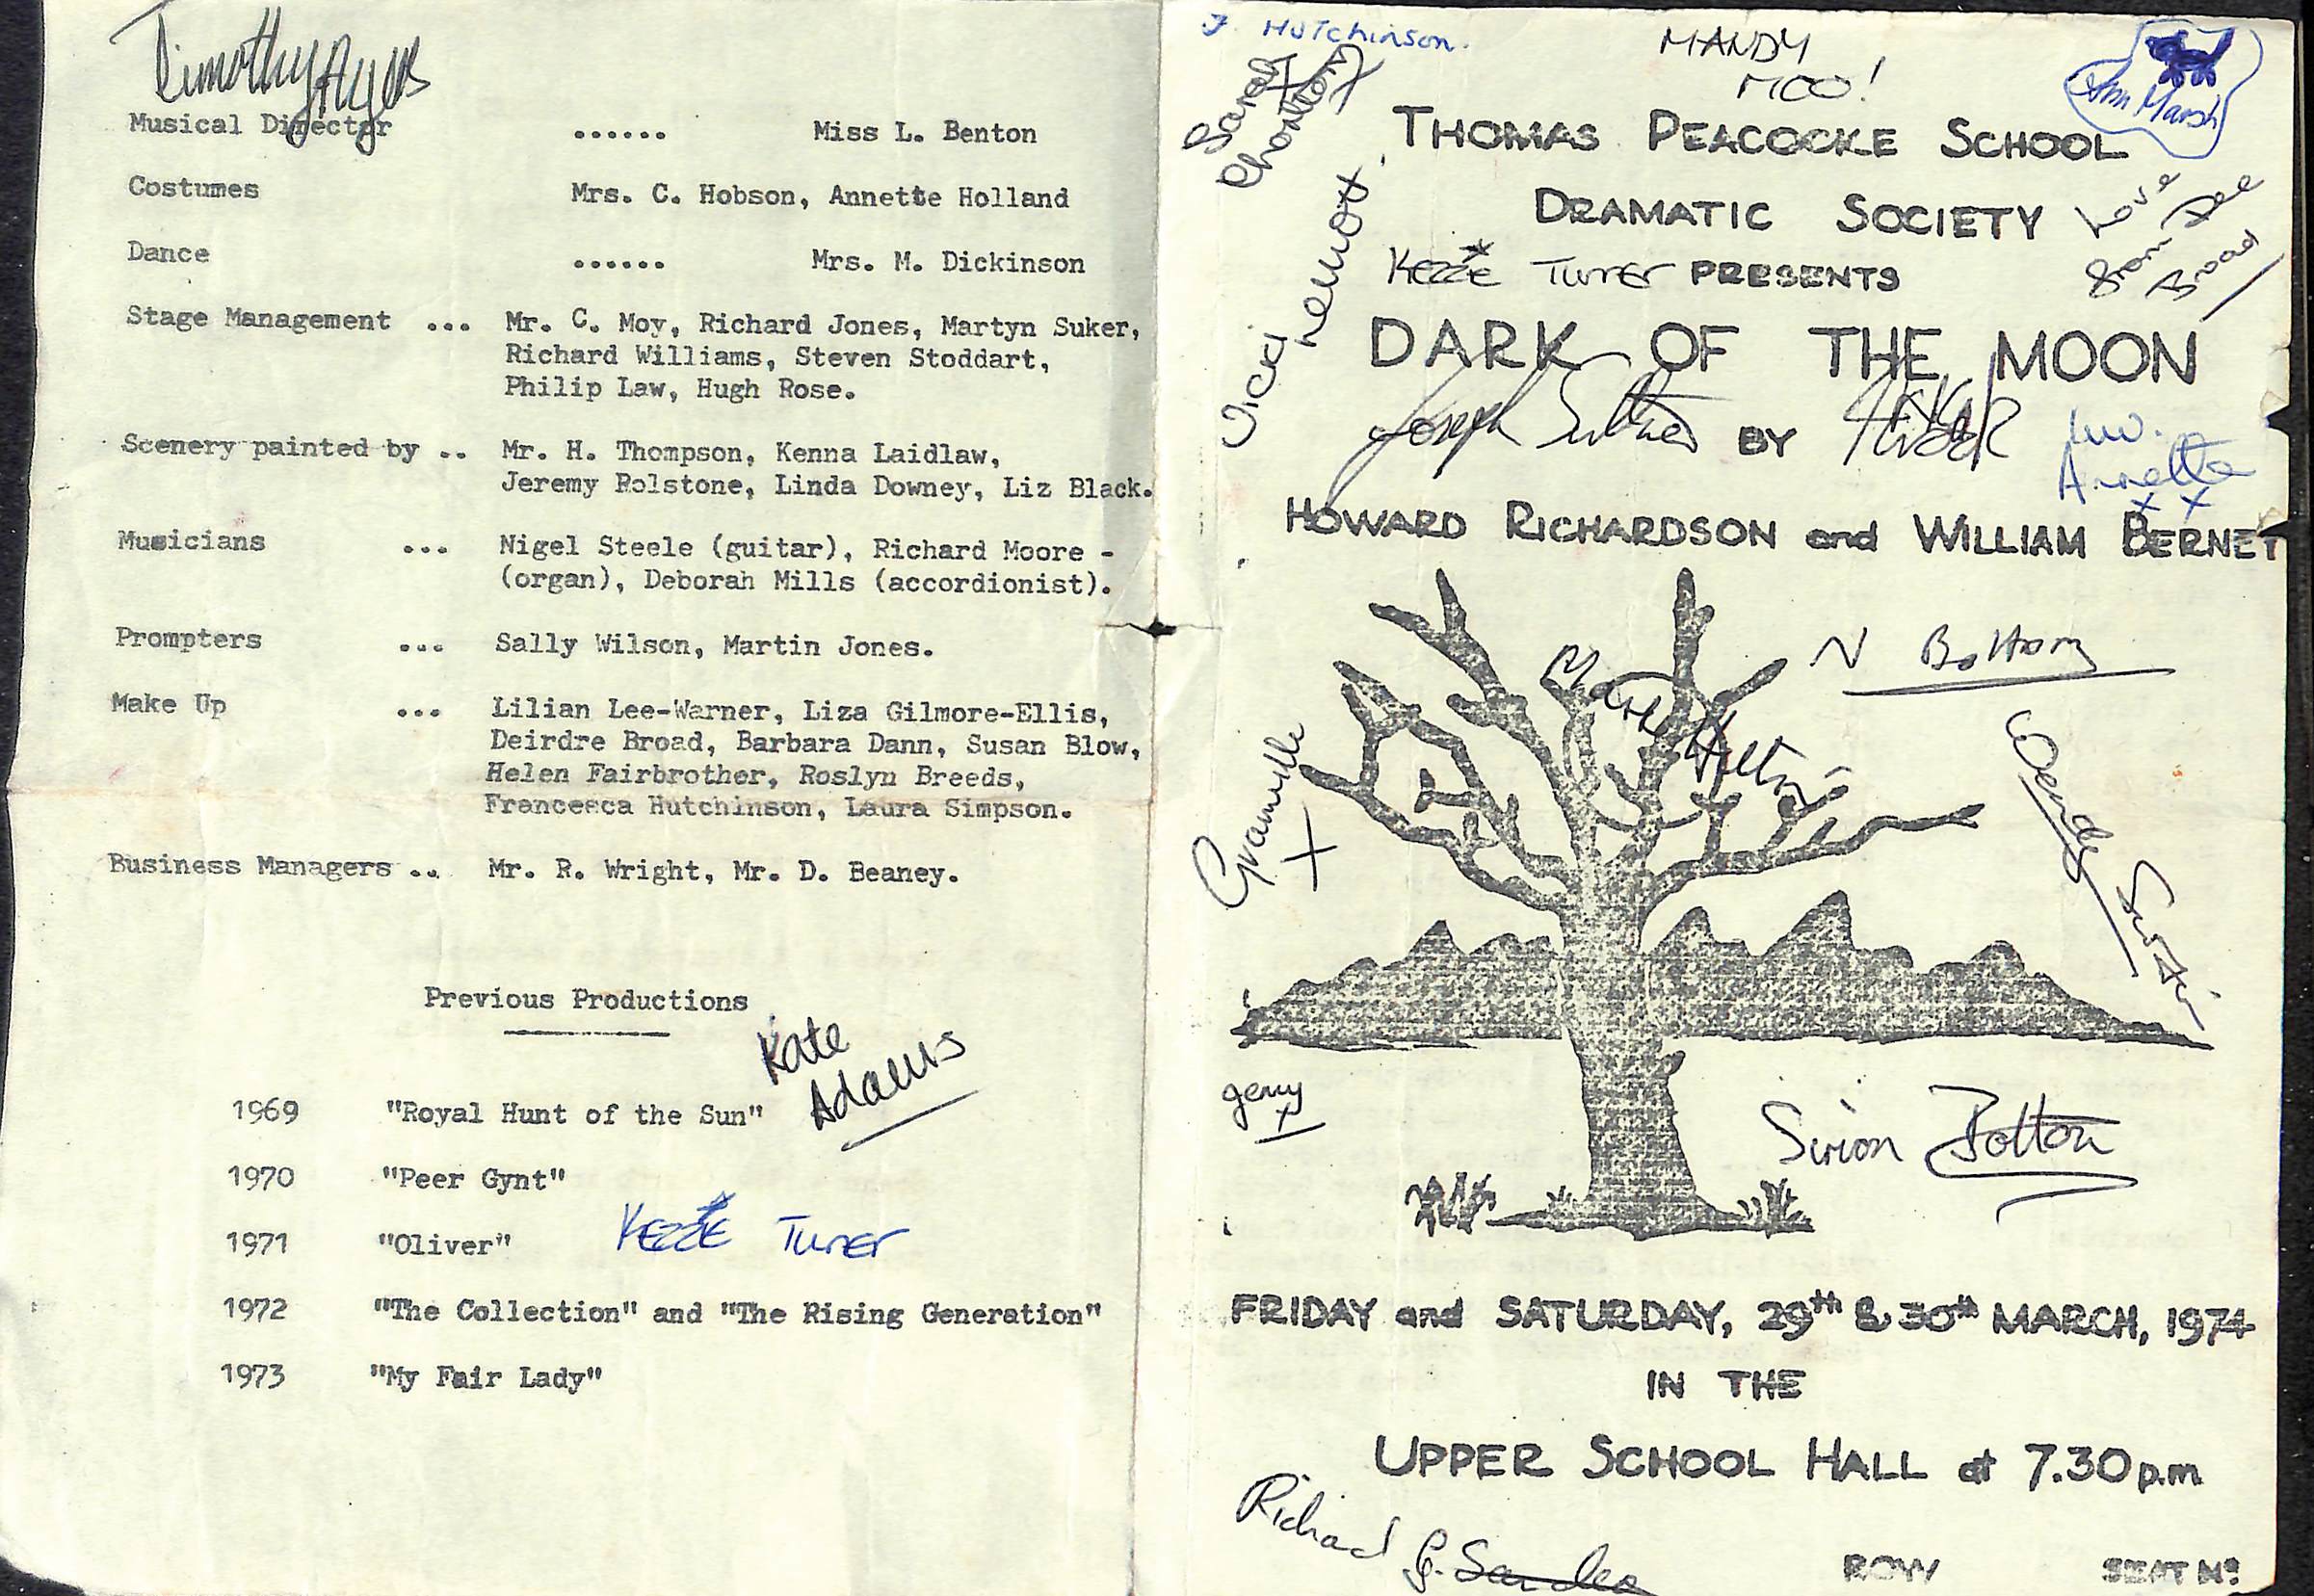 Timothy Ayers
Musical Director ...... Miss L. Benton
Costumes Mrs. C. Hobson, Annette Holland
Dance ...... Mrs. M. Dickinson
Stage Management ... Mr. C. Moy, Richard Jones, Martyn Suker,
Richard Williams, Steven Stoddart,
Philip Law, Hugh Rose.
Scenery painted by .. Mr. H. Thompson, Kenna Laidlaw,
Jeremy Rolstone, Linda Downey, Liz Black.
Musicians ... Nigel Steele (guitar), Richard Moore -
(organ), Deborah Mills (accordionist).
Prompters ... Sally Wilson, Martin Jones.
Make Up ... Lilian Lee-Warner, Liza Gilmore-Ellis,
Deirdre Broad, Barbara Dann, Susan Blow,
Helen Fairbrother, Roslyn Breeds,
Francesca Hutchinson, Laura Simpson.
Business Managers .. Mr. R. Wright, Mr. D. Beaney.
Previous Productions
Kate
Adams
1969 "Royal Hunt of the Sun"
1970 "Peer Gynt"
1971 "Oliver"
Kezzie Turner
1972 "The Collection" and "The Rising Generation"
1973 "My Fair Lady"
F. Hutchinson.
MANDY
MOO!
Ann Marsh
Sarah
THOMAS PEACOCKE SCHOOL
DRAMATIC SOCIETY
Love
from Dee
Broad
Kezzie Turner PRESENTS
Vicki
DARK OF THE MOON
Joseph
BY
luv.
Annette
x x
HOWARD RICHARDSON and WILLIAM BERNEY
N Bottom
Granville
x
Wendy
gerry
x
Simon Bolton
FRIDAY and SATURDAY, 29th & 30th MARCH, 1974
IN THE
UPPER SCHOOL HALL at 7.30 p.m
Richard G. Sandes
ROW SEAT No